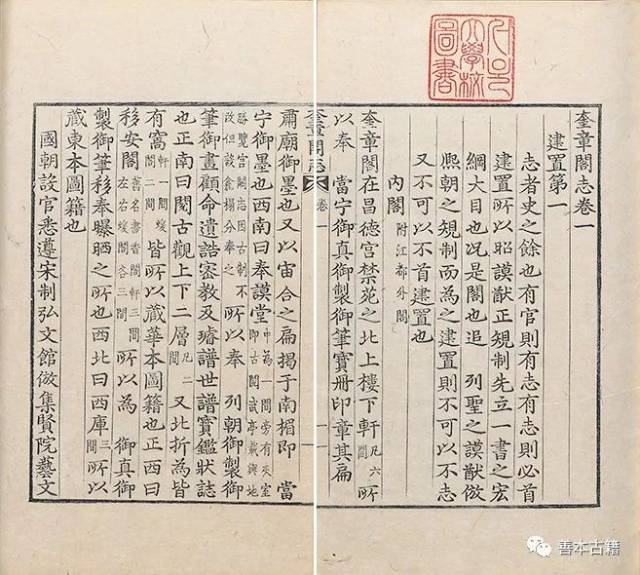 서울
大學校
圖書
奎章閣志卷一
建置第一
志者史之餘也有官則有志有志則必首
建置所以昭謨猷正規制先立一書之宏
綱大目也况是閣也追 列聖之謨猷倣
熙朝之規制而為之建置則不可以不志
又不可以不首建置也
內閣 附江都外閣
奎章閣在昌德宮禁苑之北上樓下軒 凡六間 所
以奉 當宁御真御製御筆寶冊印章其扁
奎章閣志 卷一 一
肅廟御墨也又以宙合之扁揭于南楣即 當
宁御墨也西南曰奉謨堂 中為一間旁有夾室即古閱武亭載輿地
勝覽宮闕志因古制不改但設龕榻分奉之 所以奉 列朝御製御
筆御畫顧命遺誥密教及璿譜世譜寶鑑狀誌
也正南曰閱古觀上下二層 凡二間 又北折為皆
有窩 軒一間煖閣二間 皆所以藏華本圖籍也正西曰
移安閣 舊名書香閣軒三間左右煖閣各三間 所以為 御真御
製御筆移奉曝晒之所也西北曰西庫 三間 所以
藏東本圖籍也
國朝設官悉遵宋制弘文館倣集賢院藝文
善本古籍